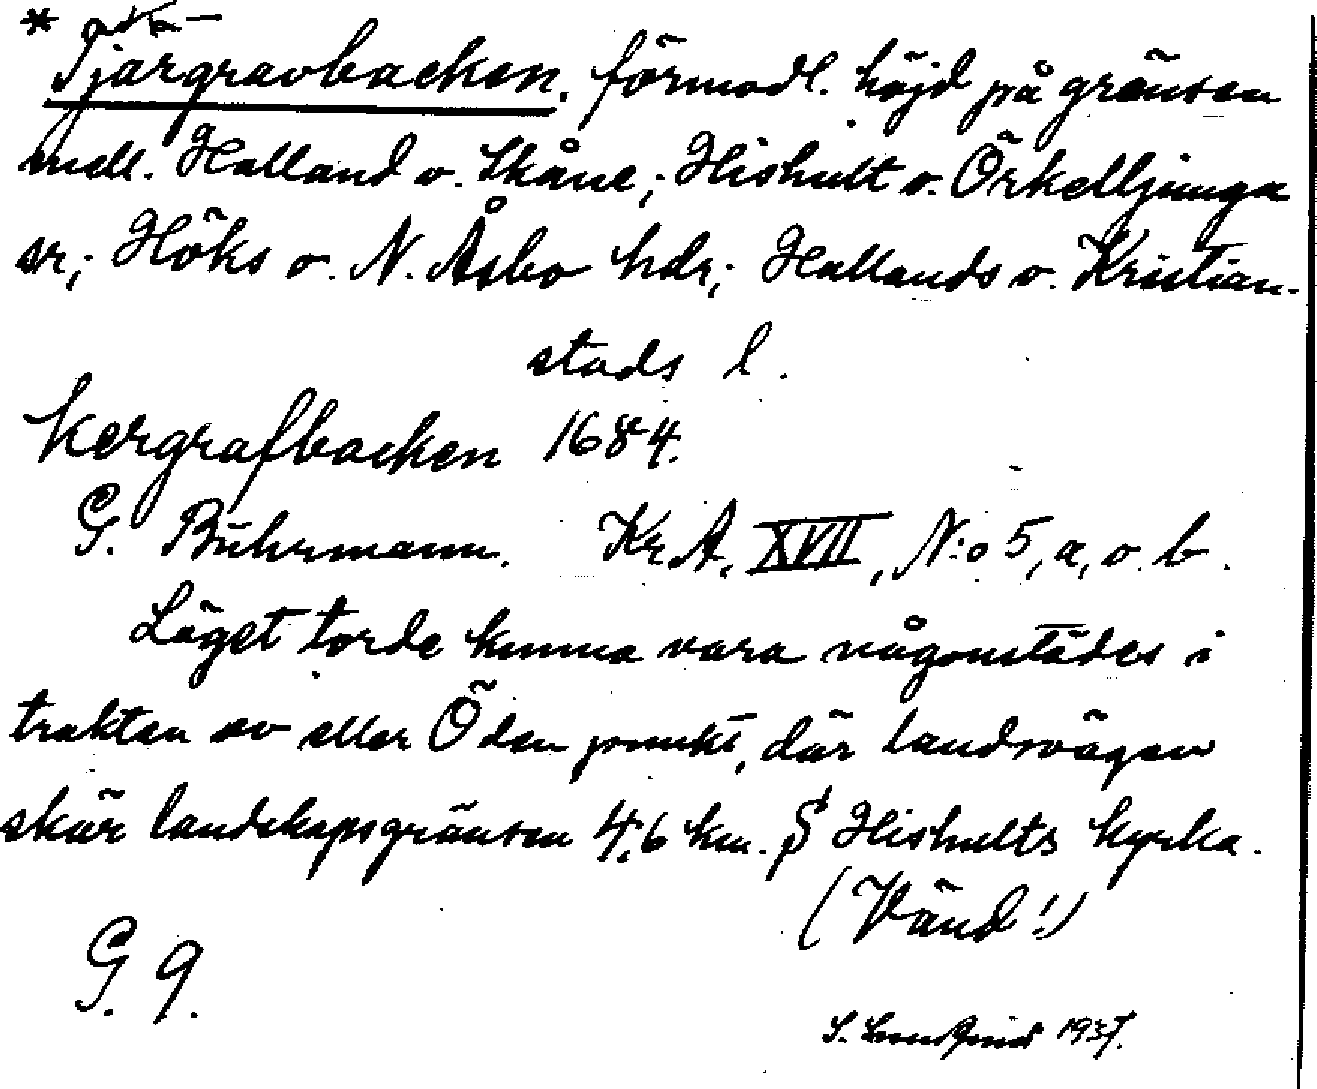 *
Tjärgravbacken. förmodl. höjd på gränsen
mell. Halland o. Skåne; Hishult o. Örkelljunga
sr; Höks o. N. Åsbo hdr; Hallands o. Kristian-
stads l.
Kergrafbacken 1684.
G. Buhrmann. Kr.A. XVII, N:o 5, a, o. b.
Läget torde kunna vara någonstädes i
trakten av eller Ö den punkt, där landsvägen
skär landskapsgränsen 4,6 km. S Hishults kyrka.
(Vänd!)
G. 9.
S. 1937.